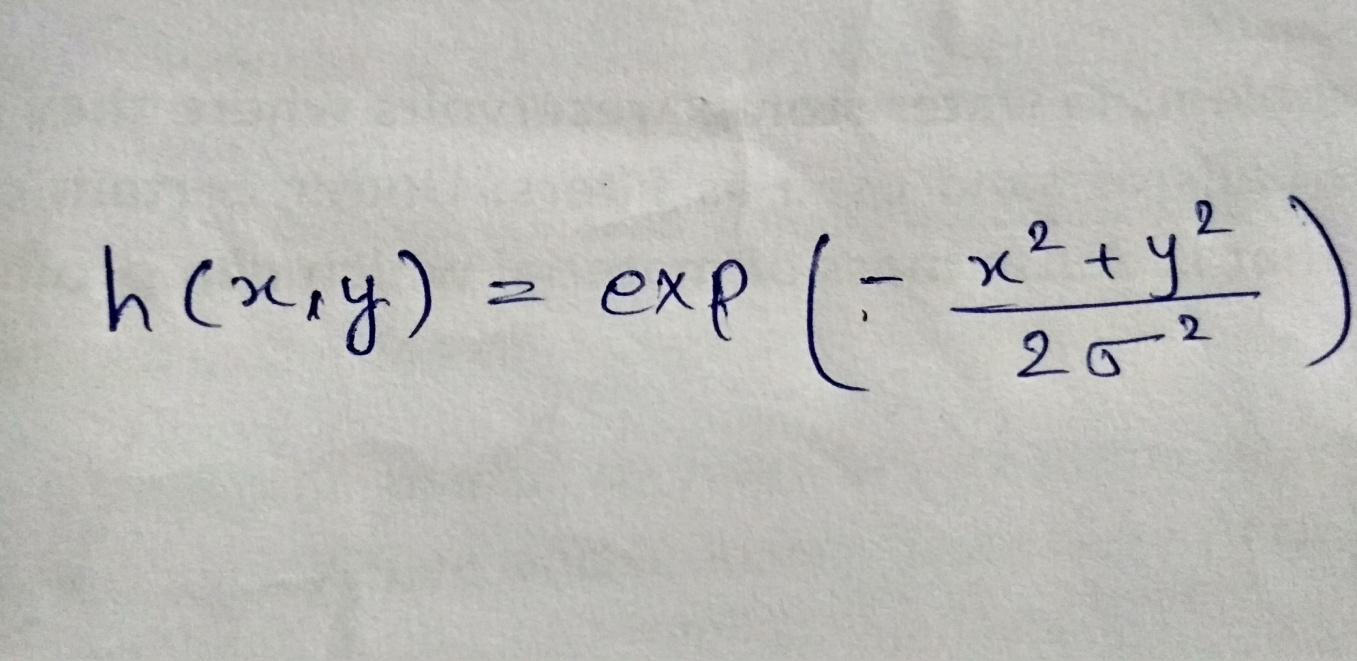 h(x,y) = exp(-\frac{x^2+y^2}{2σ^2})